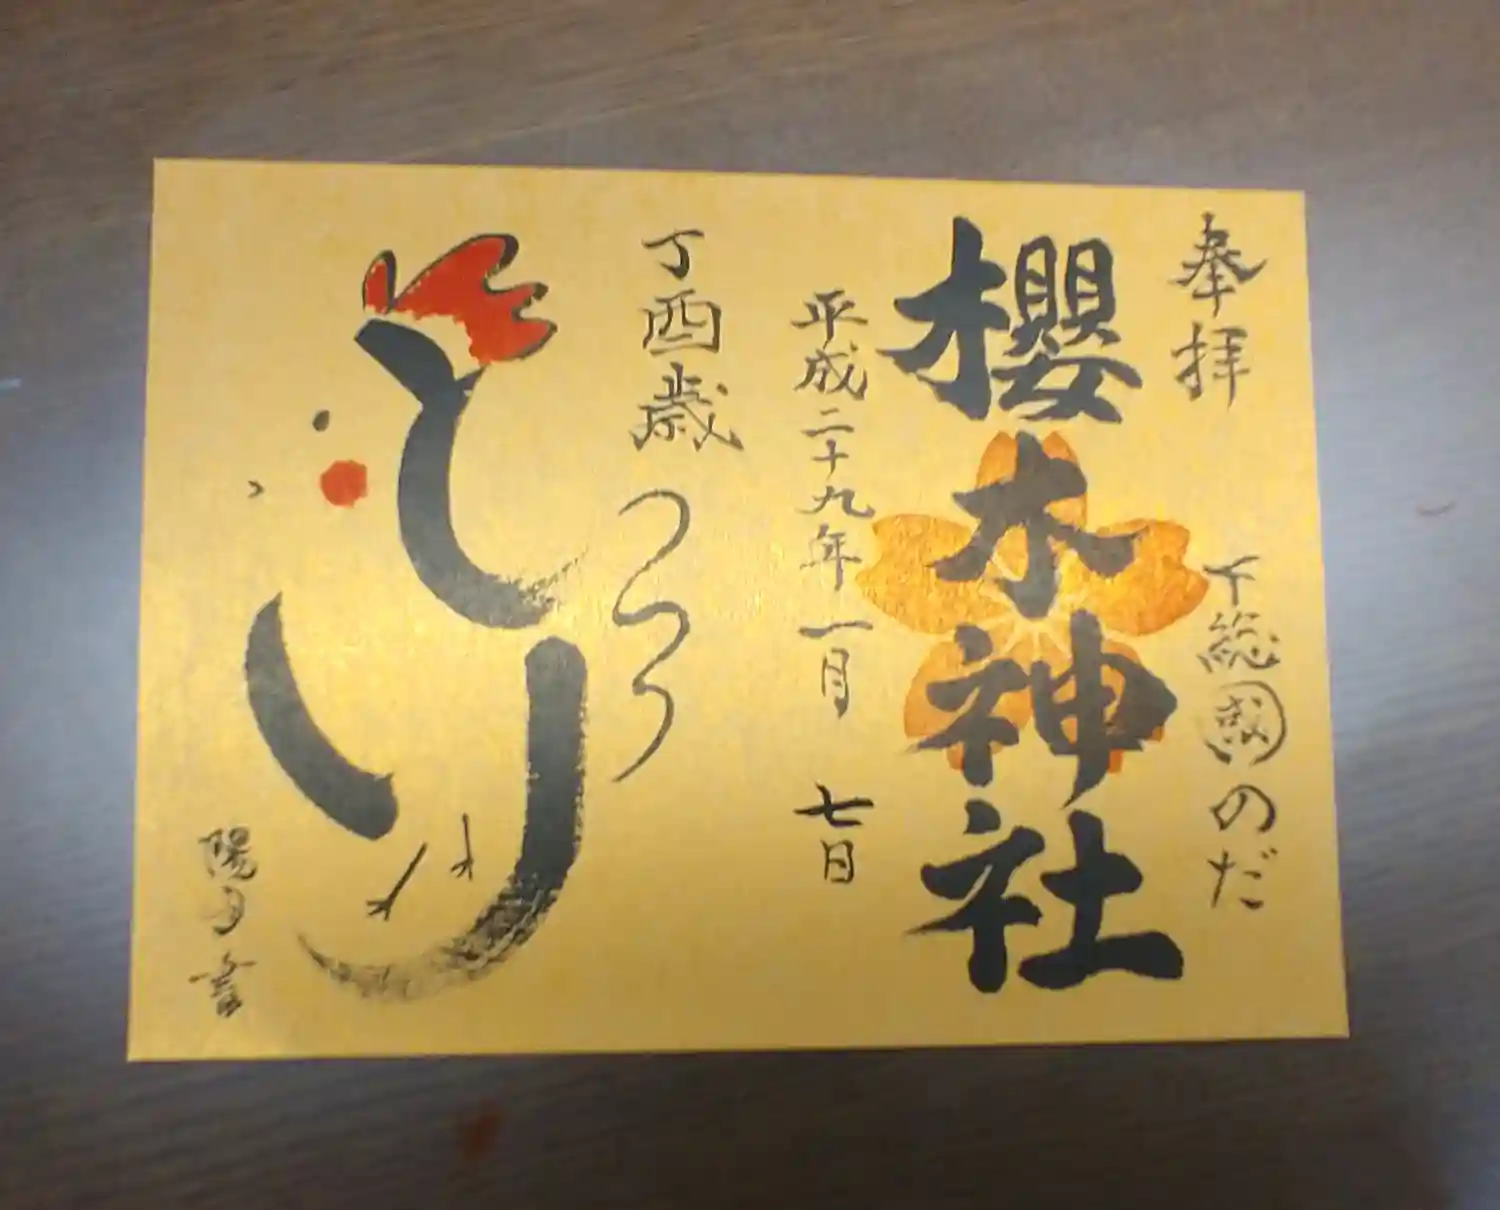 奉拝
下総國のだ
櫻木神社
平成二十九年一月 七日
丁酉歳
とり